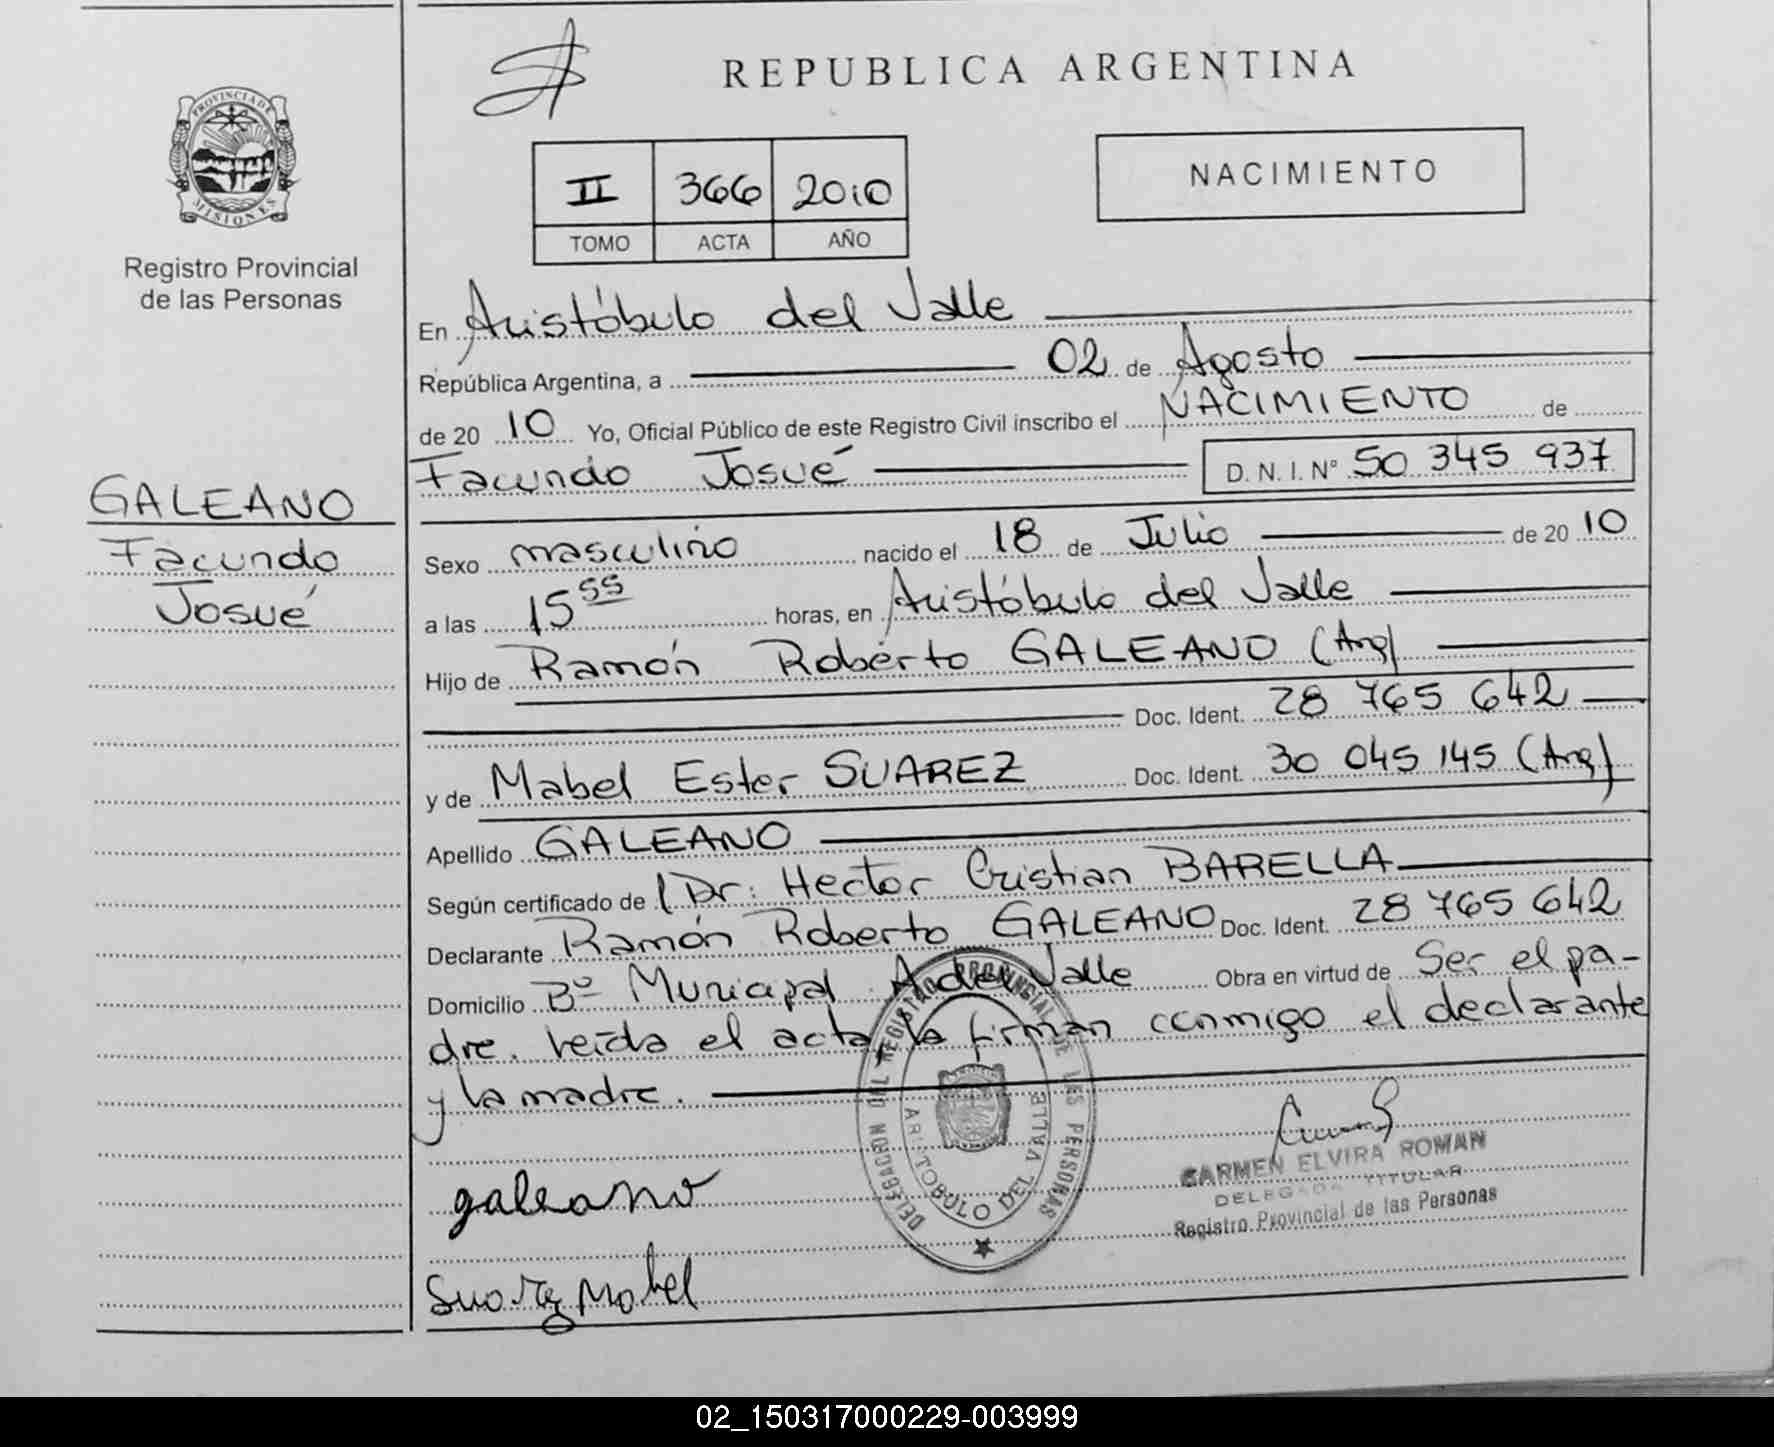 REPUBLICA ARGENTINA
PROVINCIA DE
MISIONES
Registro Provincial
de las Personas
II 366 2010
TOMO ACTA AÑO
NACIMIENTO
En Aristóbulo del Valle
República Argentina, a 02 de Agosto
de 20 10 Yo, Oficial Público de este Registro Civil inscribo el NACIMIENTO de
Facundo Josué D. N. I. Nº 50 345 937
GALEANO
Facundo
Josué
Sexo masculino nacido el 18 de Julio de 20 10
a las 15 55 horas, en Aristóbulo del Valle
Hijo de Ramón Roberto GALEANO (Arg)
Doc. Ident. 28 765 642
y de Mabel Ester SUAREZ Doc. Ident. 30 045 145 (Arg)
Apellido GALEANO
Según certificado de Dr: Hector Cristian BARELLA
Declarante Ramón Roberto GALEANO Doc. Ident. 28 765 642
Domicilio Bº Municipal A del Valle Obra en virtud de Ser el pa-
dre. leída el acta, la firman conmigo el declarante
y la madre.
DELEGACION DEL REGISTRO PROVINCIAL DE LAS PERSONAS
ARISTOBULO DEL VALLE
CARMEN ELVIRA ROMAN
DELEGADA TITULAR
Registro Provincial de las Personas
galeano
Suarez Mabel
02_150317000229-003999